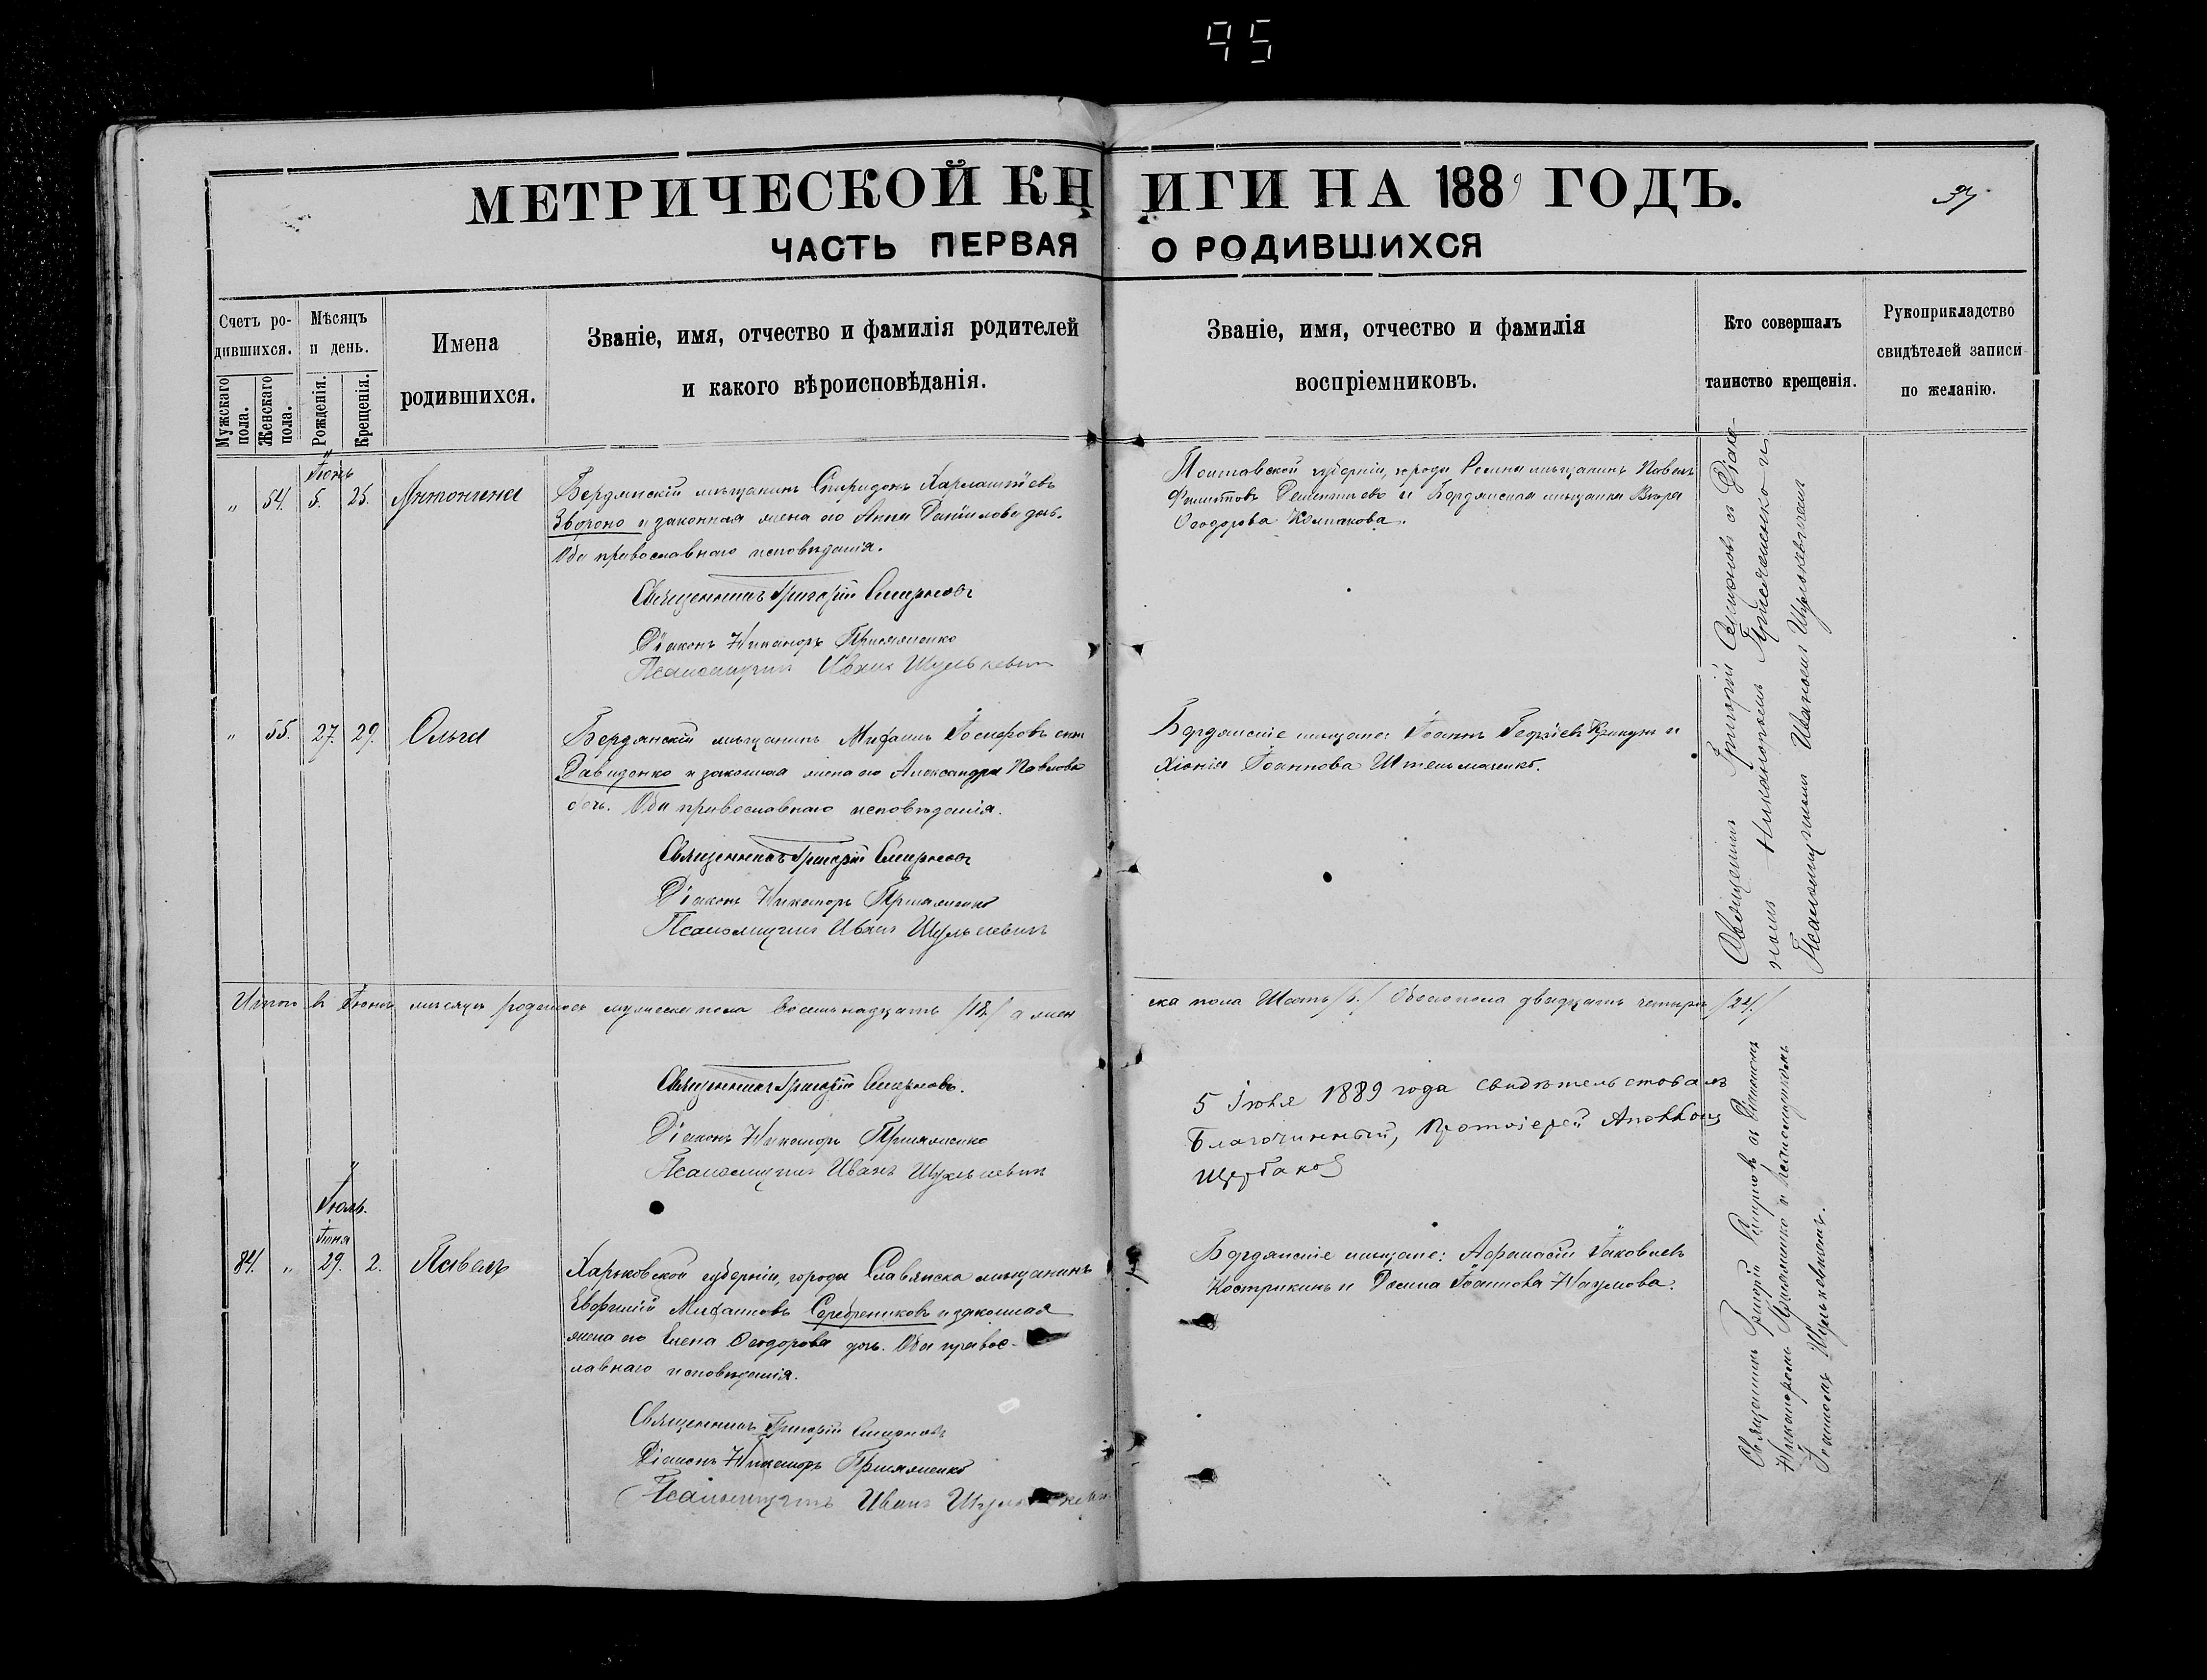 95
МЕТРИЧЕСКОЙ КНИГИ НА 1889 ГОДЪ.
ЧАСТЬ ПЕРВАЯ О РОДИВШИХСЯ
Счетъ родившихся.
Мужскаго пола.
Женскаго пола.
Мѣсяцъ и день.
Рожденія.
Крещенія.
Имена
родившихся.
Званіе, имя, отчество и фамилія родителей
и какого вѣроисповѣданія.
Званіе, имя, отчество и фамилія
воспріемниковъ.
Кто совершалъ
таинство крещенія.
Рукоприкладство
свидѣтелей записи
по желанію.
Іюнь
" 54. 5. 25. Антонина
Бердянскій мѣщанинъ Спиридонъ Харлампіевъ
Звороно и законная жена его Анна Даніилова дочь.
Оба православнаго исповѣданія.
Священникъ Григорій Смирновъ
Діаконъ Никаноръ Присяженко
Псаломщикъ Иванъ Шулькевичъ
Полтавской губерніи, города Ромна мѣщанинъ Павелъ
Филиповъ и Бердянская мѣщанка
Ѳеодорова Колпакова.
Священникъ Григорій Смирновъ съ Діако-
номъ Никаноромъ Присяженко и
Псаломщикомъ Иваномъ Шулькевичемъ
" 55. 27. 29. Ольга
Бердянскій мѣщанинъ Михаилъ Іосифовъ сынъ
Давиденко и законная жена его Александра Павлова
дочь. Оба православнаго исповѣданія.
Священникъ Григорій Смирновъ
Діаконъ Никаноръ Присяженко
Псаломщикъ Иванъ Шулькевичъ
Бердянскіе мѣщане: Іоаннъ Георгіевъ Крикунъ и
Хіонія Іоаннова Штельмаченко.
Итого въ Іюнѣ мѣсяцѣ родилось мужеска пола восемьнадцать /18/ а женска пола шесть /6./ Обоего пола двадцать четыре /24/
Священникъ Григорій Смирновъ.
Діаконъ Никаноръ Присяженко
Псаломщикъ Иванъ Шулькевичъ
5 Іюля 1889 года свидѣтельствовалъ
Благочинный, Протоіерей Аполлонъ
Щербаковъ
Іюль.
Іюня
84. " 29. 2. Павелъ
Харьковской губерніи, города Славянска мѣщанинъ
Евфимій Михаиловъ Серебрениковъ и законная
жена его Елена Ѳеодорова дочь. Оба правос-
лавнаго исповѣданія.
Священникъ Григорій Смирновъ
Діаконъ Никаноръ Присяженко
Псаломщикъ Иванъ Шулькевичъ
Бердянскіе мѣщане: Афанасій Іаковлевъ
Кострикинъ и Іоаннова Наумова.
Священникъ Григорій Смирновъ съ Діакономъ
Никаноромъ Присяженко и псаломщикомъ
Іоанномъ Шулькевичемъ.